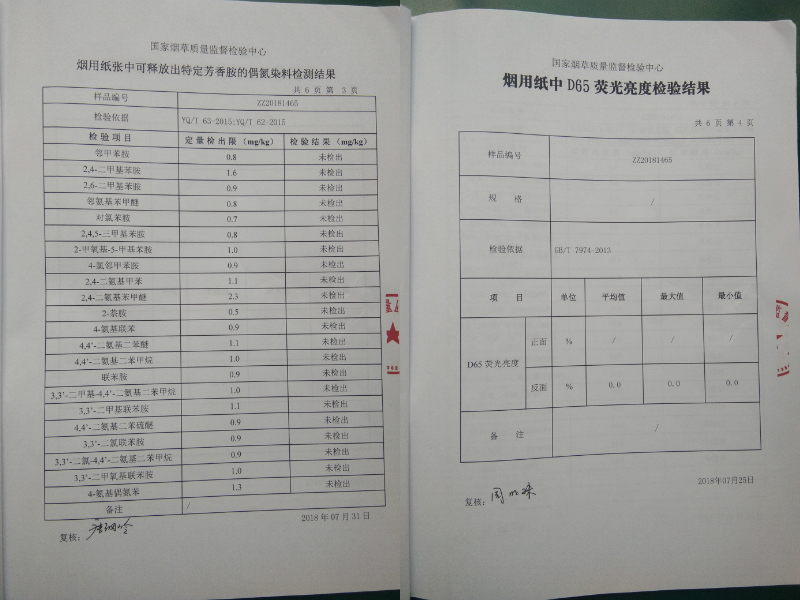 国家烟草质量监督检验中心
烟用纸张中可释放出特定芳香胺的偶氮染料检测结果
共 6 页 第 3 页
样品编号 ZZ20181465
检验依据 YQ/T 63-2015;YQ/T 62-2015
检验项目 定量检出限（mg/kg） 检验结果（mg/kg）
邻甲苯胺 0.8 未检出
2,4-二甲基苯胺 1.6 未检出
2,6-二甲基苯胺 0.9 未检出
邻氨基苯甲醚 0.8 未检出
对氯苯胺 0.7 未检出
2,4,5-三甲基苯胺 0.8 未检出
2-甲氧基-5-甲基苯胺 1.0 未检出
4-氯邻甲苯胺 0.9 未检出
2,4-二氨基甲苯 1.1 未检出
2,4-二氨基苯甲醚 2.3 未检出
2-萘胺 0.5 未检出
4-氨基联苯 0.9 未检出
4,4'-二氨基二苯醚 1.1 未检出
4,4'-二氨基二苯甲烷 1.0 未检出
联苯胺 0.9 未检出
3,3'-二甲基-4,4'-二氨基二苯甲烷 1.0 未检出
3,3'-二甲基联苯胺 1.1 未检出
4,4'-二氨基二苯硫醚 0.9 未检出
3,3'-二氯联苯胺 0.9 未检出
3,3'-二氯-4,4'-二氨基二苯甲烷 0.9 未检出
3,3'-二甲氧基联苯胺 1.0 未检出
4-氨基偶氮苯 1.3 未检出
备注 /
2018 年 07 月 31 日
复核：
国家烟草质量监督检验中心
烟用纸中 D65 荧光亮度检验结果
共 6 页 第 4 页
样品编号 ZZ20181465
规 格 /
检验依据 GB/T 7974-2013
项 目 单位 平均值 最大值 最小值
D65 荧光亮度 正面 % / / /
反面 % 0.0 0.0 0.0
备 注 /
2018年07月25日
复核：